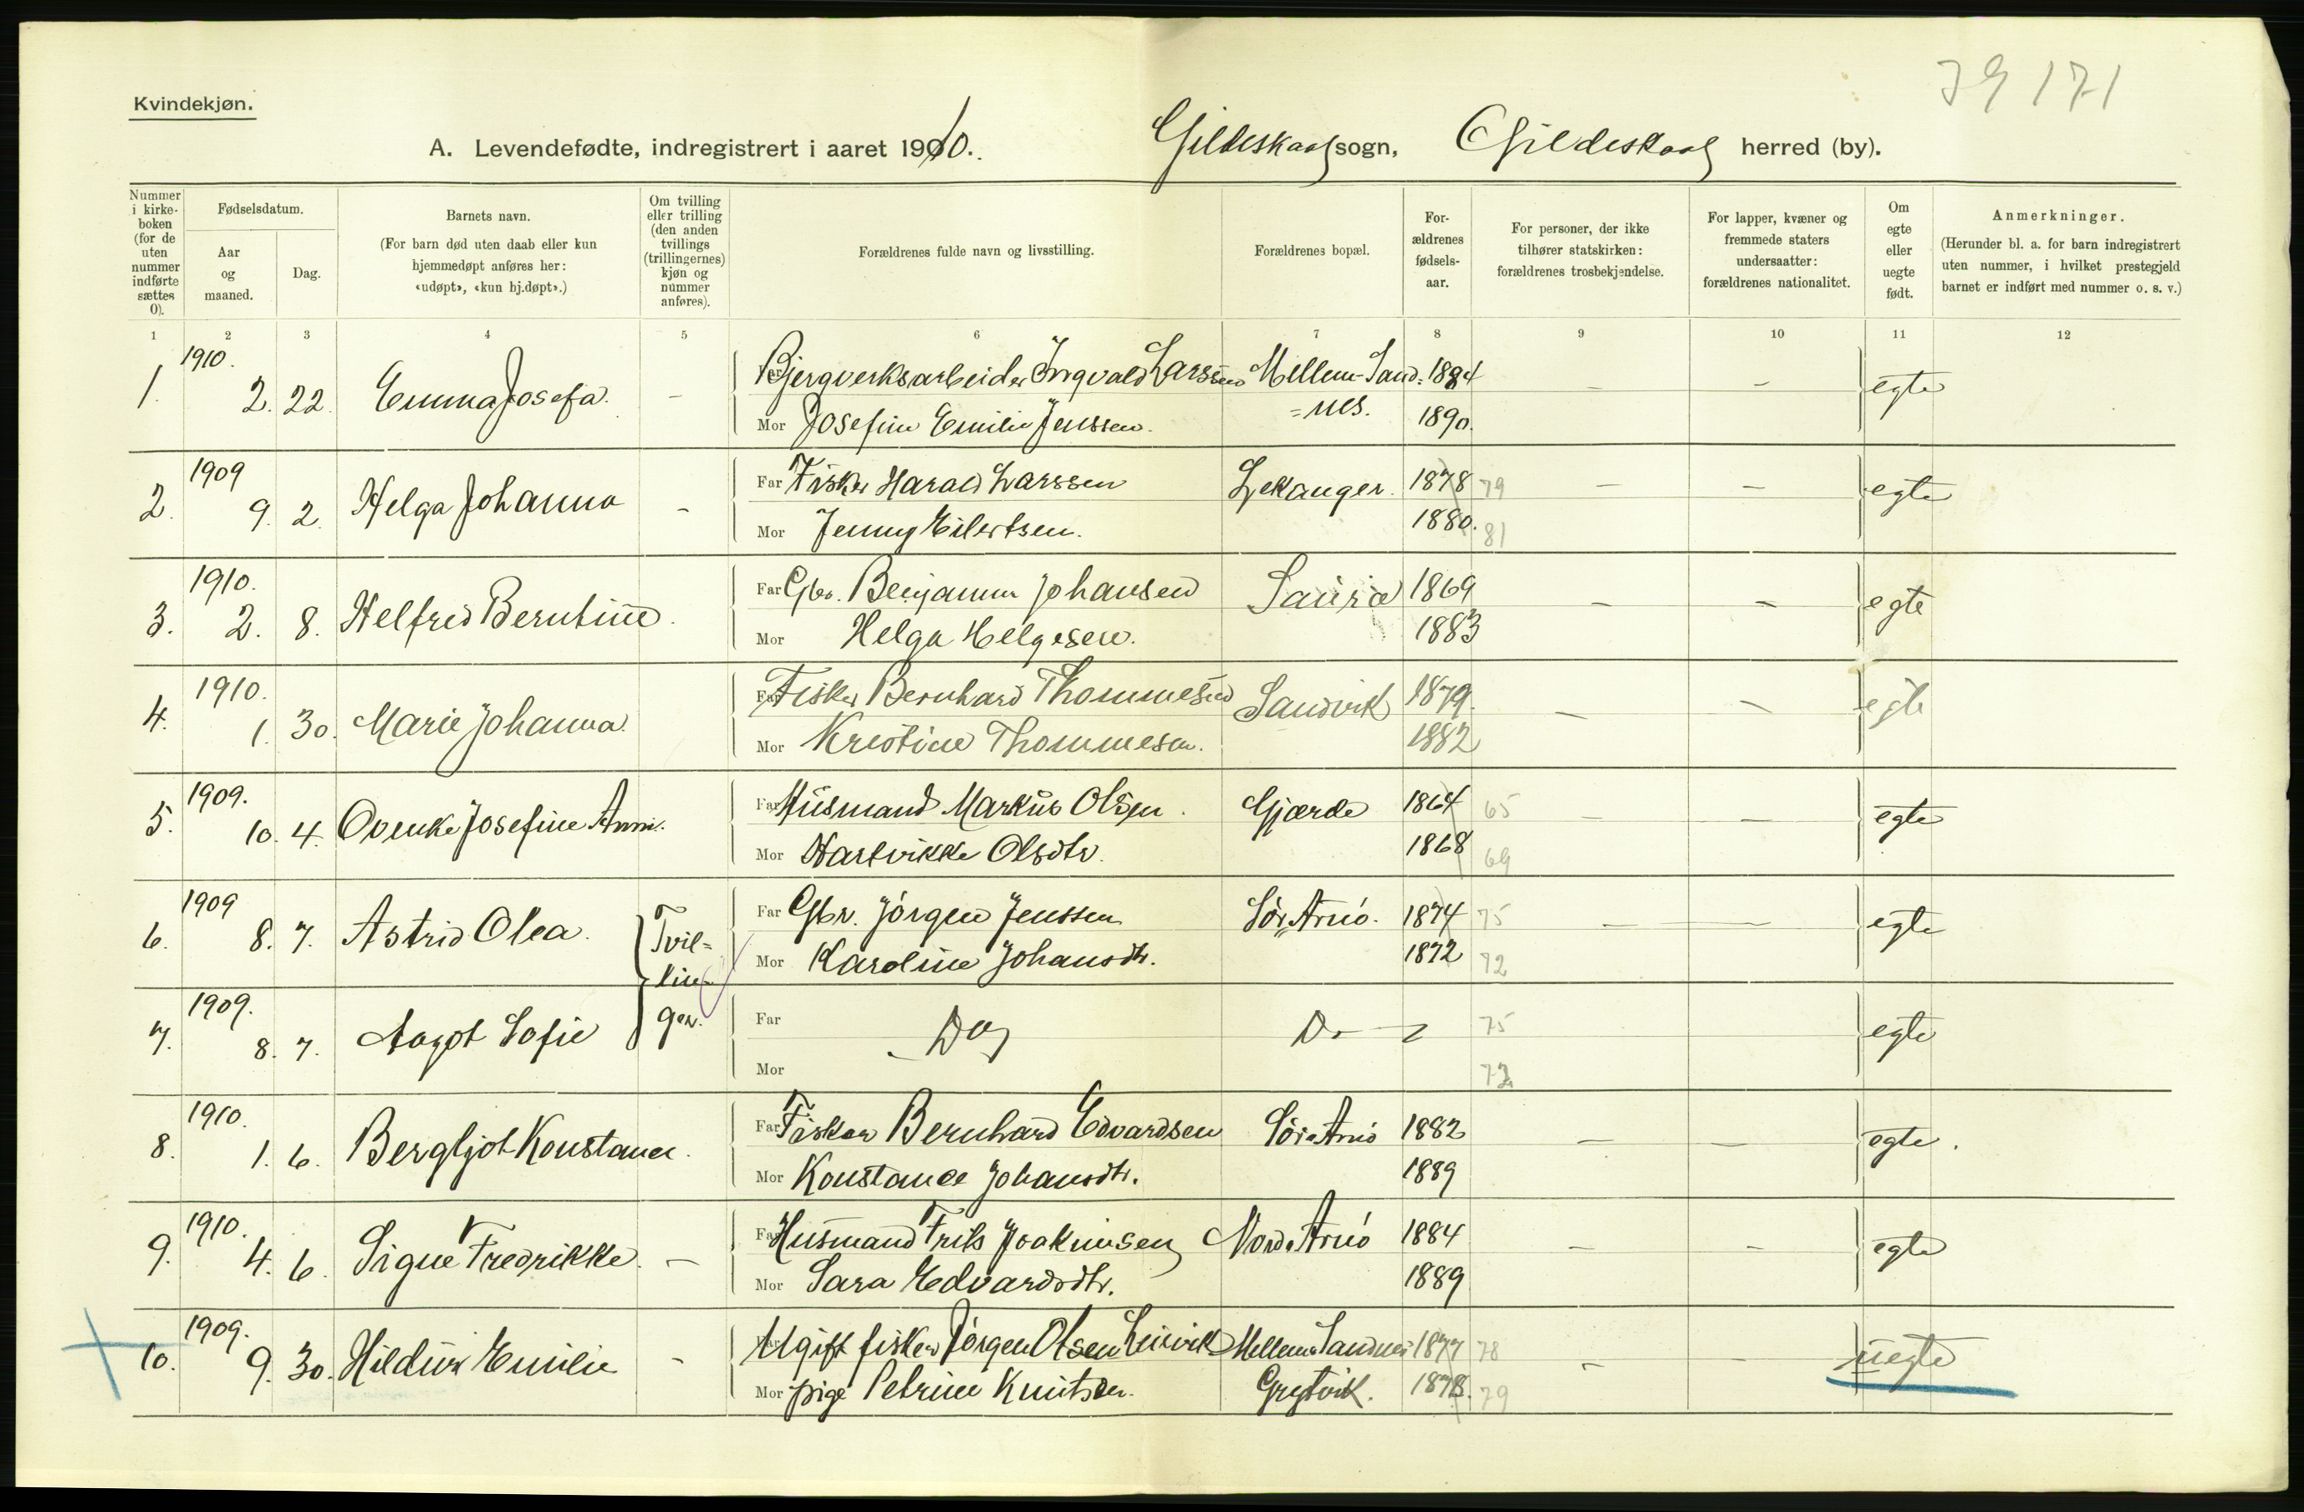 39 171
Kvindekjøn.
A. Levendefødte, indregistrert i aaret 1910. Gildeskaal sogn, Gildeskaal herred (by).
Nummer i kirke-boken (for de uten nummer indførte sættes 0).
Fødselsdatum.
Aar og maaned.
Dag.
Barnets navn.
(For barn død uten daab eller kun hjemmedøpt anføres her: «udøpt», «kun hj.døpt».)
Om tvilling eller trilling (den anden tvillings (trillingernes) kjøn og nummer anføres).
Forældrenes fulde navn og livsstilling.
Forældrenes bopæl.
For-ældrenes fødsels-aar.
For personer, der ikke tilhører statskirken: forældrenes trosbekjendelse.
For lapper, kvæner og fremmede staters undersaatter: forældrenes nationalitet.
Om egte eller uegte født.
Anmerkninger.
(Herunder bl. a. for barn indregistrert uten nummer, i hvilket prestegjeld barnet er indført med nummer o. s. v.)
1 2 3 4 5 6 7 8 9 10 11 12
1. 1910. 2. 22. Emma Josefa. - Far Bjergverksarbeider Ingvald Larssen Mellem-Sand= 1884 - - egte
Mor Josefine Emilie Jenssen. =nes. 1890.
2. 1909 9. 2. Helga Johanna - Far Fisker Harald Larssen Lekanger. 1878 79 - - egte
Mor Jenny Eilertsen. 1880. 81
3. 1910. 2. 8. Helfrid Berntine. Far Gbr. Benjamin Johansen Saura 1869 - - egte
Mor Helga Helgesen. 1883
4. 1910. 1. 30. Marie Johanna. Far Fisker Bernhard Thommesen Sandvik 1879. - - egte
Mor Kristine Thommesen. 1882
5. 1909. 10. 4. Ovenke Josefine Anni. Far Husmand Markus Olsen. Gjærde 1864 65 - - egte
Mor Hartvikke Olsdtr. 1868 69
6. 1909 8. 7. Astrid Olea. Tvil= Far Gbr. Jörgen Jenssen Sör Arnö. 1874 75 - - egte
lin= Mor Karoline Johansdtr. 1872 72
7. 1909. 8. 7. Aagot Sofie ger. Far Do Do 75 egte
Mor 72
8. 1910. 1. 6. Bergljot Konstance. Far Fisker Bernhard Edvardsen Sör Arnö 1882 - - egte.
Mor Konstance Johansdtr. 1889
9. 1910. 4. 6. Signe Fredrikke. - Far Husmand Frits Joakimsen Nord Arnö 1884 - - egte
Mor Sara Edvardsdtr. 1889
10. 1909. 9. 30. Hildur Emilie - Far Ugift fisker Jörgen Olsen Leirvik Mellem Sandnes 1877 78 - - uegte
Mor pige Petrine Knutsen. Grytvik. 1878. 79